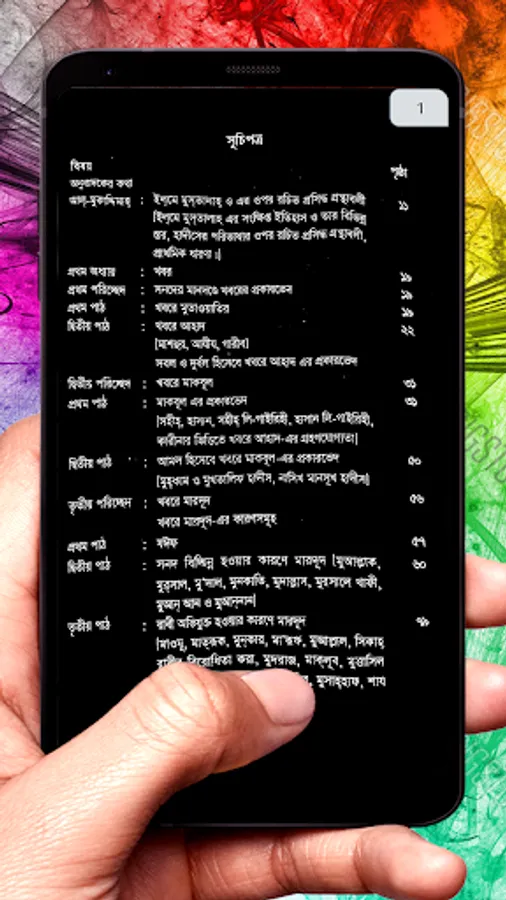 1
সূচিপত্র
বিষয় পৃষ্ঠা
অনুবাদকের কথা
আল-মুকাদ্দিমাহ্ : ইল্‌মে মুস্‌তালাহ্ ও এর ওপর রচিত প্রসিদ্ধ গ্রন্থাবলী ১১
ইল্‌মে মুস্‌তালাহ এর সংক্ষিপ্ত ইতিহাস ও তার বিভিন্ন
স্তর, হাদীসের পরিভাষার ওপর রচিত প্রসিদ্ধ গ্রন্থাবলী,
প্রাথমিক ধারণা।
প্রথম অধ্যায় : খবর ১৯
প্রথম পরিচ্ছেদ : সনদের মানদণ্ডে খবরের প্রকারভেদ ১৯
প্রথম পাঠ : খবরে মুতাওয়াতির ১৯
দ্বিতীয় পাঠ : খবরে আহাদ ২২
[মাশহুর, আযীয, গারীব]
সবল ও দুর্বল হিসেবে খবরে আহাদ এর প্রকারভেদ
দ্বিতীয় পরিচ্ছেদ : খবরে মাকবূল ৩১
প্রথম পাঠ : মাকবূল এর প্রকারভেদ ৩১
[সহীহ্, হাসান, সহীহ্ লি-গাইরিহী, হাসান লি-গাইরিহী,
কারীনার ভিত্তিতে খবরে আহাদ-এর গ্রহণযোগ্যতা]
দ্বিতীয় পাঠ : আমল হিসেবে খবরে মাকবূল-এর প্রকারভেদ ৫০
[মুহ্‌কাম ও মুখতালিফ হাদীস, নাসিখ মানসূখ হাদীস]
তৃতীয় পরিচ্ছেদ : খবরে মারদূদ ৫৬
খবরে মারদূদ-এর কারণসমূহ
প্রথম পাঠ : যঈফ ৫৭
দ্বিতীয় পাঠ : সনদ বিচ্ছিন্ন হওয়ার কারণে মারদূদ [মুআল্লাক, ৬০
মুর্‌সাল, মু'দাল, মুনকাতি, মুদাল্লাস, মুরসালে খাফী,
মুআন্ আন ও মুআন্নান]
তৃতীয় পাঠ : রাবী অভিযুক্ত হওয়ার কারণে মারদূদ ৭৯
[মাওযু, মাত্‌রূক, মুন্‌কার, মা'রূফ, মুআল্লাল, সিকাহ্
রাবীর বিরোধিতা করা, মুদরাজ, মাক্‌লূব, মুত্তাসিল
মুসাহ্‌হাফ, শায